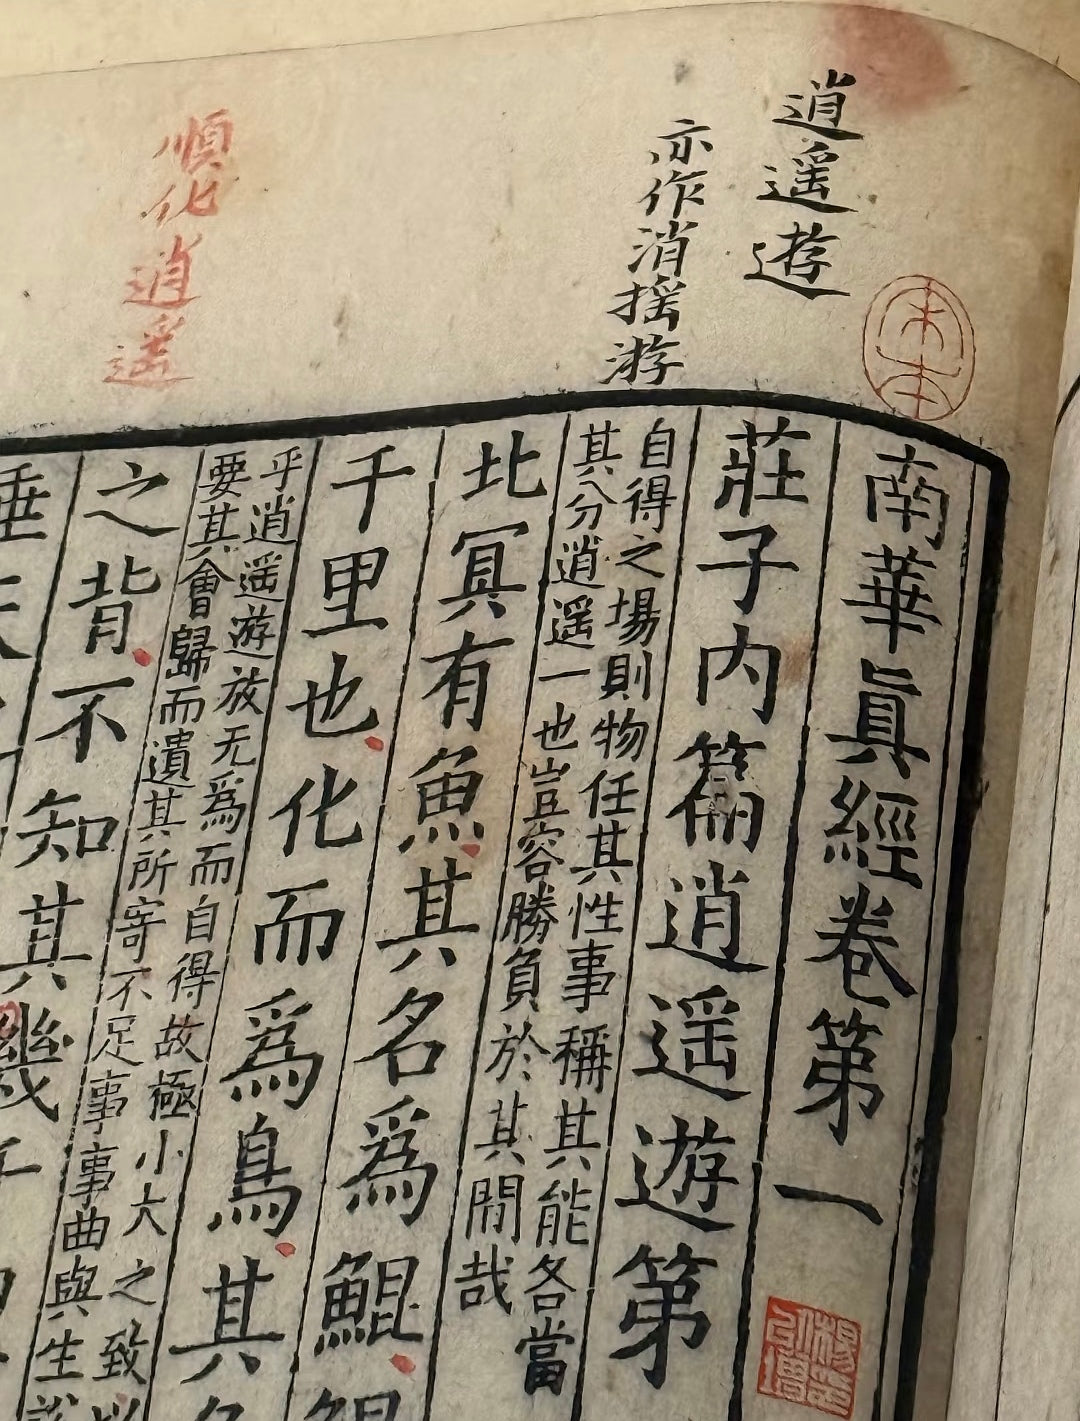 逍遥遊
亦作消摇游
順化逍遥
南華眞經卷第一
莊子内篇逍遥遊第
自得之場則物任其性事稱其能各當
其分逍遥一也豈容勝負於其閒哉
北冥有魚其名爲鯤
千里也化而爲鳥其
乎逍遥游放无爲而自得故極小大之致
要其會歸而遺其所寄不足事事曲與生
之背不知其幾
垂天